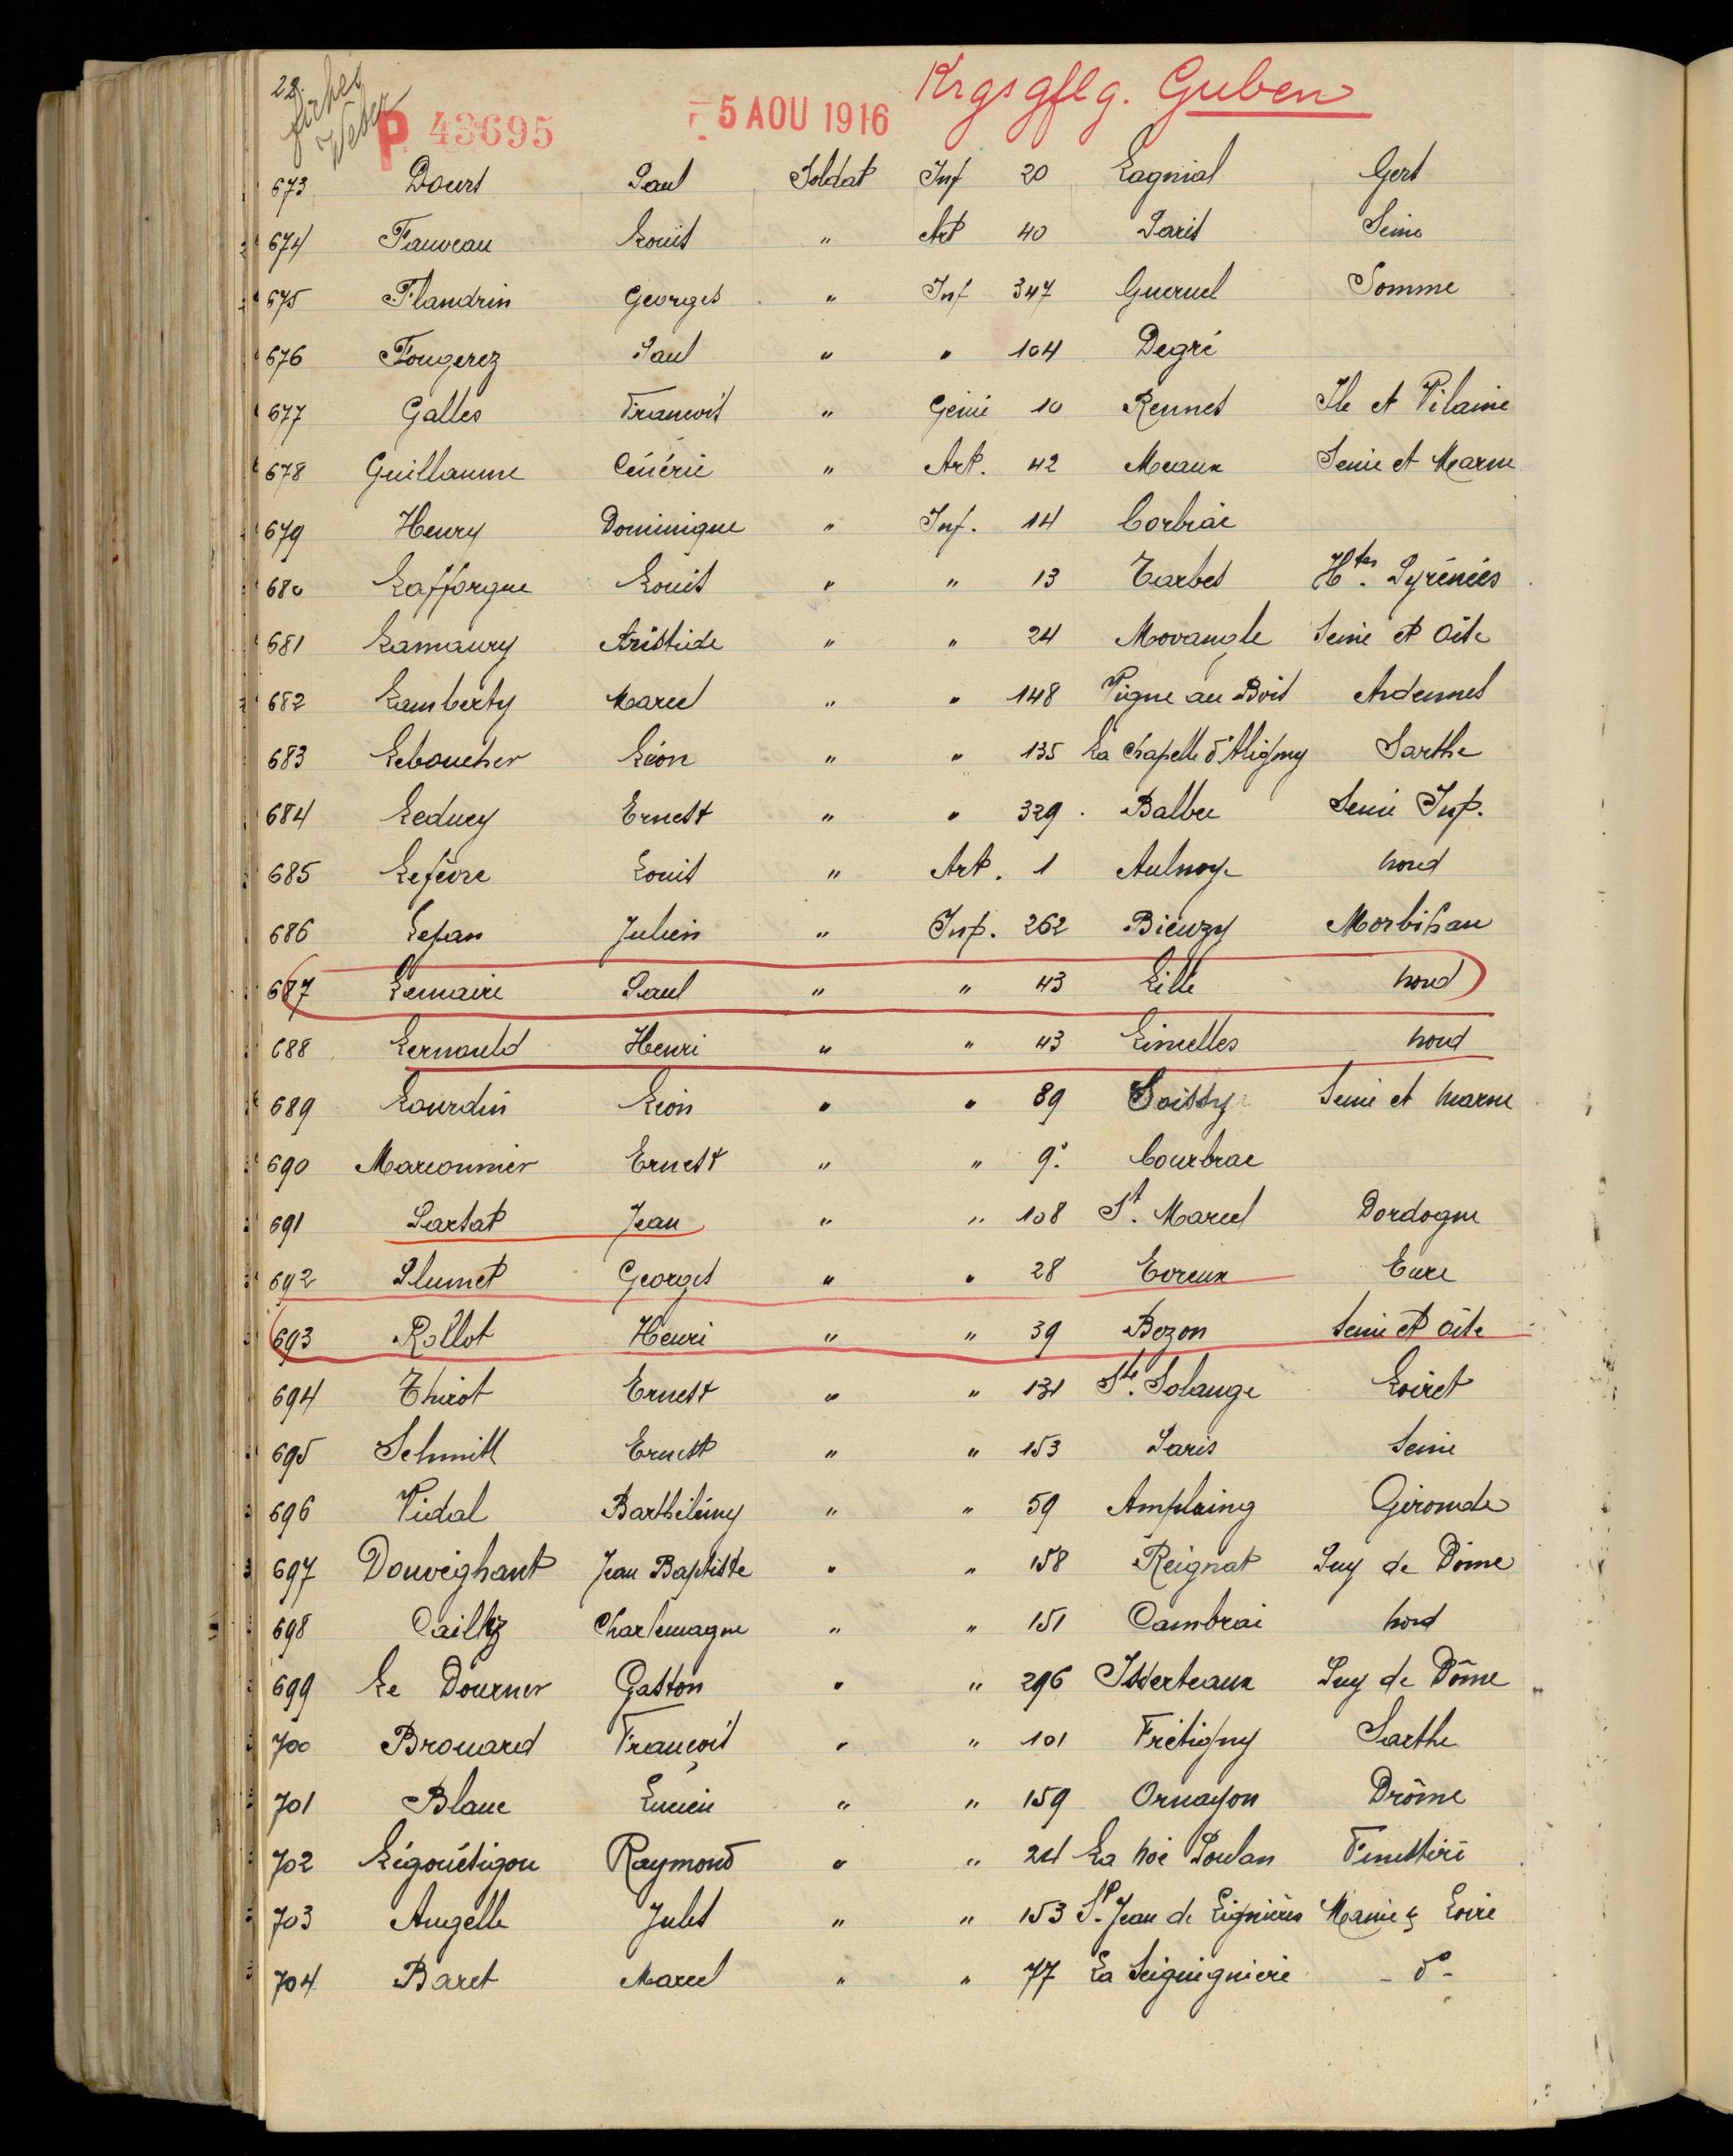 28.
fiches
Weber
P 43695
5 AOU 1916
Krgsgflg. Guben
673 Dours Paul Soldat Inf 20 Lagnial Gers
674 Fauveau Louis " Art 40 Paris Seine
675 Flandrin Georges " Inf 347 Gueruel Somme
676 Fougerez Paul " " 104 Degré
677 Galles François " Génie 10 Rennes Ile et Vilaine
678 Guillaume Cénérie " Art. 42 Meaux Seine et Marne
679 Henry Dominique " Inf. 14 Corbiac
680 Lafforgue Louis " " 13 Tarbes Htes. Pyrénées
681 Lamaury Aristide " " 24 Morangle Seine et Oise
682 Lamberty Marcel " " 148 Vigne au Bois Ardennes
683 Leboucher Léon " " 135 La Chapelle d'Aligny Sarthe
684 Leducy Ernest " " 329 Balbec Seine Inf.
685 Lefèvre Louis " Art. 1 Aulnoye Nord
686 Lefan Julien " Inf. 262 Bieuzy Morbihan
687 Lemaire Paul " " 43 Lille Nord
688 Lernould Henri " " 43 Lincelles Nord
689 Lourdin Léon " " 89 Soissy Seine et Marne
690 Marconnier Ernest " " 9. Courbiac
691 Parsat Jean " " 108 St. Marcel Dordogne
692 Plumet Georges " " 28 Evreux Eure
693 Rollot Henri " " 39 Bezon Seine et Oise
694 Thirot Ernest " " 131 Ste. Solange Loiret
695 Schmitt Ernest " " 153 Paris Seine
696 Vidal Barthélémy " " 59 Amplaing Gironde
697 Douvéghant Jean Baptiste " " 158 Reignat Puy de Dôme
698 Charlemagne " " 151 Cambrai Nord
699 Le Dourner Gaston " " 296 Isserteaux Puy de Dôme
700 Brouard François " " 101 Frétigny Sarthe
701 Blanc Lucien " " 159 Ornayon Drôme
702 Légouétigou Raymond " " 24 La Poulan Finistère
703 Angelle Jules " " 153 St. Jean de Lignières Maine & Loire
704 Baret Marcel " " 77 La Séguignière - do -